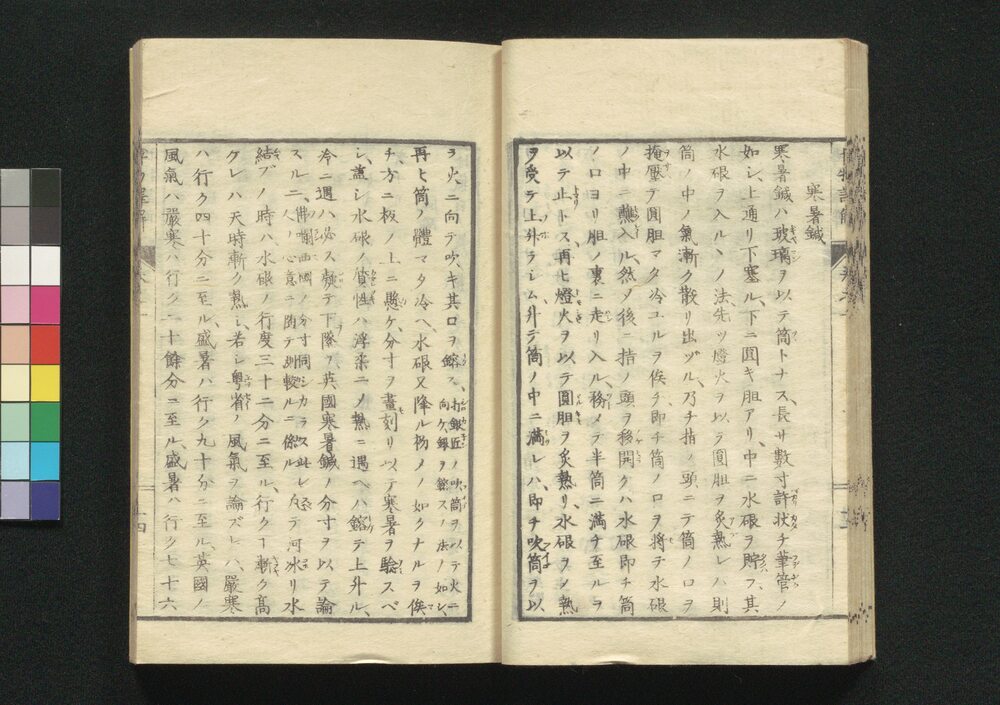 寒暑鍼
寒暑鍼ハ玻璃ヲ以テ筒トナス、長サ數寸許状チ筆管ノ
如シ、上通リ下塞ル、下ニ圓キ胆アリ、中ニ水碌ヲ貯フ、其
水碌ヲ入ルヽノ法先ツ燈火ヲ以テ圓胆ヲ炙熱レハ則
筒ノ中ノ氣漸ク散リ出ヅル、乃チ指ノ頭ニテ筒ノ口ヲ
掩壓ヲ圓胆マタ冷ユルヲ俟チ即チ筒ノ口ヲ將テ水碌
ノ中ニ蘸入ル、然メ後ニ指ノ頭ヲ移開クハ水碌即チ筒
ノ口ヨリ胆ノ裏ニ走リ入ル、務メテ半筒ニ満チ至ルヲ
以テ止トス、再ヒ燈火ヲ以テ圓胆ヲ炙熱リ、水碌ヲメ熱
ヲ受テ上升ラシム、升テ筒ノ中ニ満レハ、即チ吹筒ヲ以
ヲ火ニ向テ吹キ其口ヲ鎔ス、打銀匠ノ吹筒ヲ以テ火ニ向ケ、銀ヲ鎔スノ法ノ如シ、
再ヒ筒ノ體マタ冷ヘ、水碌又降ル初メノ如クナルヲ俟
チ、方ニ板ノ上ニ懸ケ、分寸ヲ畫刻リ以テ寒暑ヲ驗スベ
シ、蓋シ水碌ノ質性ハ浮柔ニメ熱ニ遇ヘハ鎔テ上升ル、
冷ニ遇ハ必ス凝テ下降ヲ、英國寒暑鍼ノ分寸ヲ以テ論
スルニ、佛囒西國ノ分寸同シカラス此レ各人ノ心意ニ随テ測較ルニ係ル、凡テ河氷リ水
結ブノ時ハ、水碌ノ行度三十二分ニ至ル、行クヿ漸ク高
クレハ天時漸ク熱シ、若シ粤省ノ風氣ヲ論ズレハ、嚴寒
ハ行ク四十分ニ至ル、盛暑ハ行ク九十分ニ至ル、英國ノ
風氣ハ嚴寒ハ行ク二十餘分ニ至ル、盛暑ハ行ク七十六